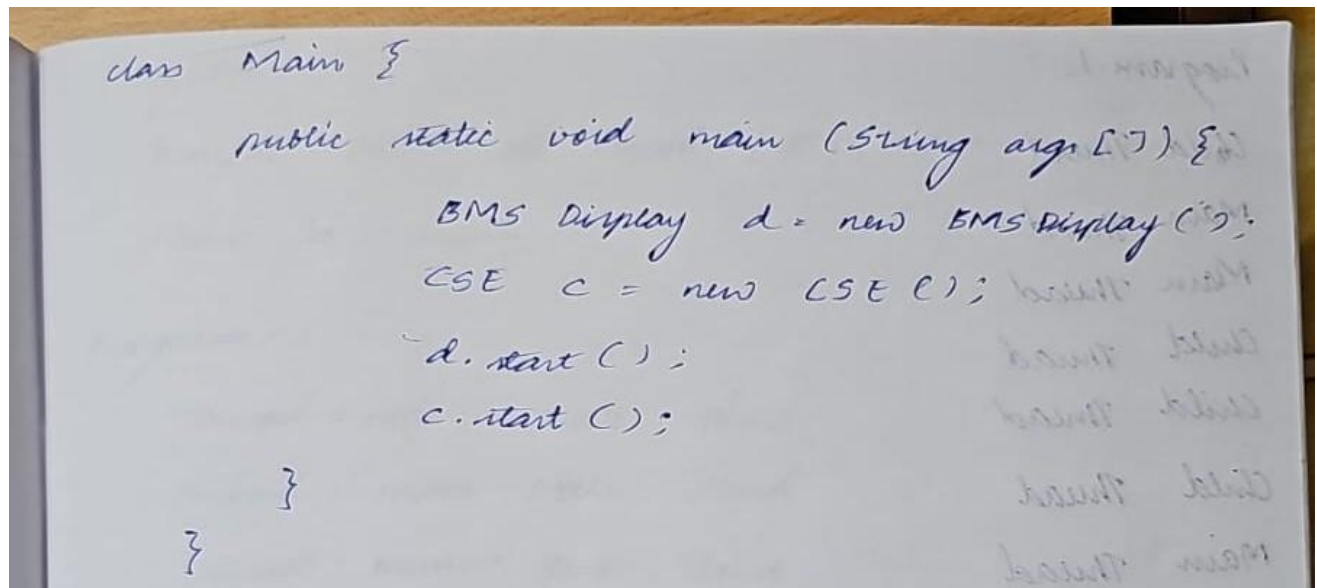 class Main {
public static void main (String args []) {
BMS Display d = new BMS Display ();
CSE c = new CSE ();
d. start () ;
c. start () ;
}
}